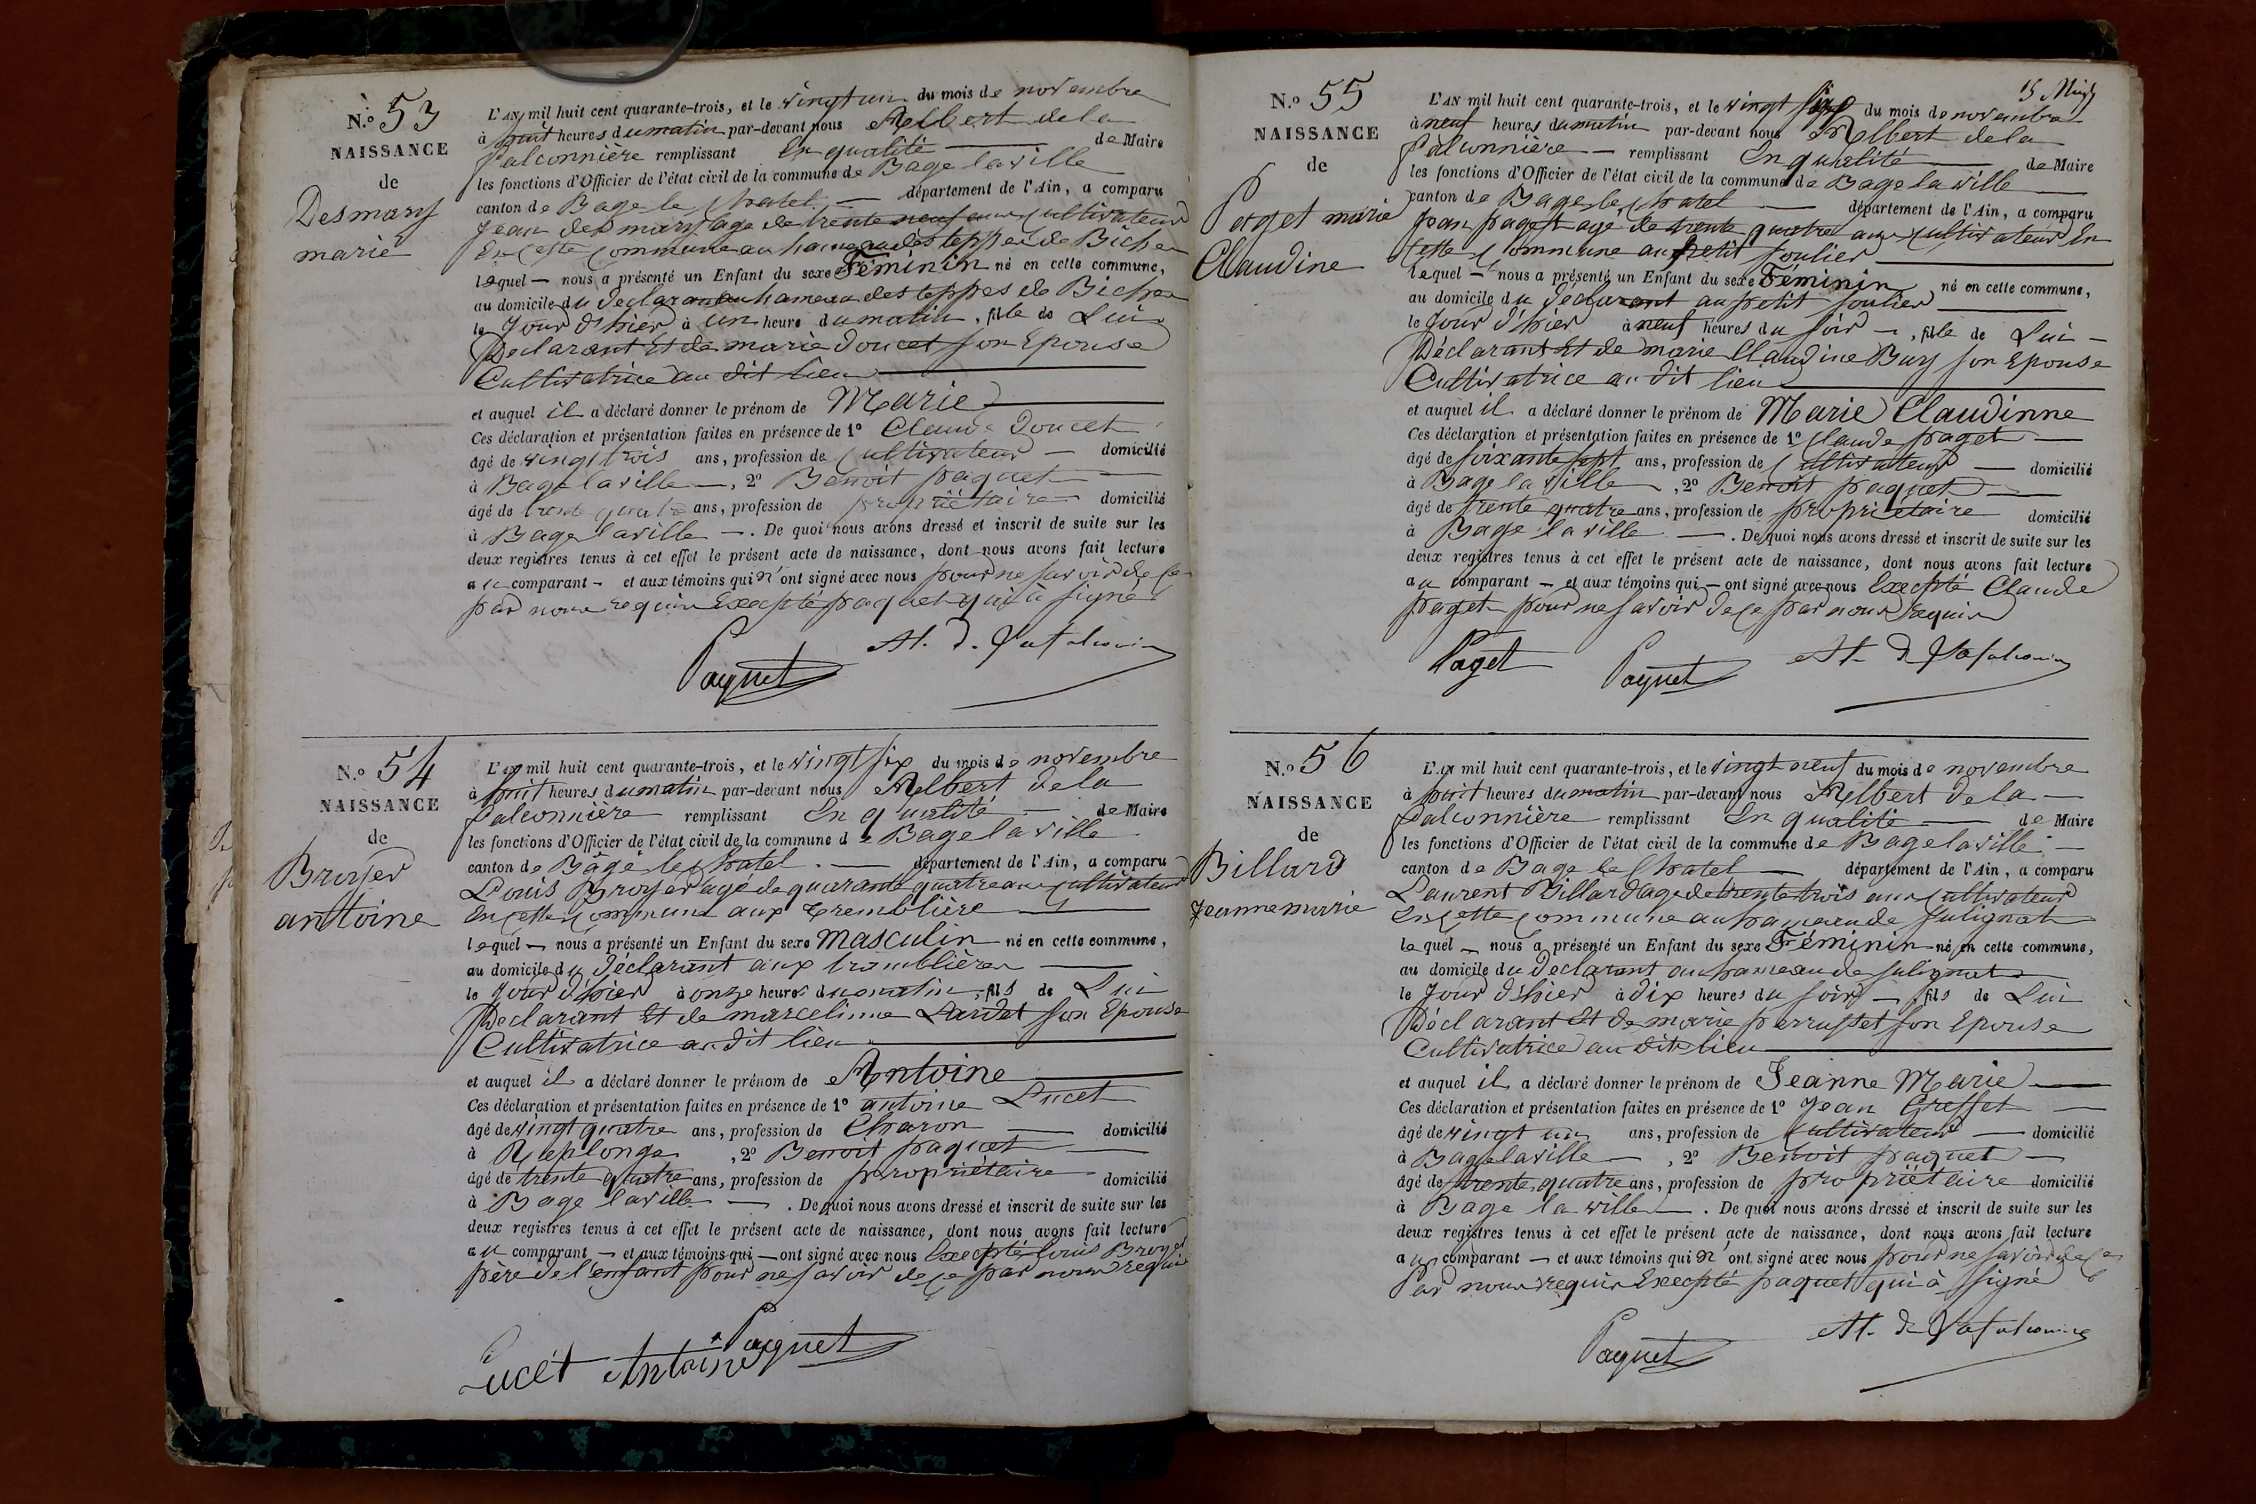 N.o 53
NAISSANCE
de
Desmary
marie
L'AN mil huit cent quarante-trois, et le vingt un du mois de novembre
à huit heures du matin par-devant nous Albert de la
falconnière remplissant En qualité de Maire
les fonctions d'Officier de l'état civil de la commune de Bage la ville
canton de Bage le Chatel département de l'Ain, a comparu
Jean desmary agé de trente neuf ans Cultivateur
En Cette Commune au hameau des teppes de Biche
lequel nous a présenté un Enfant du sexe Féminin né en cette commune,
au domicile du declarant au hameau des teppes de Biche
le Jour d'hier à un heure du matin, fille de Lui
Declarant Et de marie doucet son Epouse
Cultivatrice au dit lieu
et auquel il a déclaré donner le prénom de Marie
Ces déclaration et présentation faites en présence de 1o Claude Doucet
âgé de vingt trois ans, profession de Cultivateur domicilié
à Bage la ville, 2o Benoit paquet
âgé de trente quatre ans, profession de propriétaire domicilié
à Bage la ville. De quoi nous avons dressé et inscrit de suite sur les
deux registres tenus à cet effet le présent acte de naissance, dont nous avons fait lecture
au comparant et aux témoins qui n'ont signé avec nous pour ne savoir de ce
par nous requis Excepté paquet qui à signé
Paquet
N.o 54
NAISSANCE
de
Broyer
antoine
L'AN mil huit cent quarante-trois, et le vingt six du mois de novembre
à huit heures du matin par-devant nous Albert de la
falconnière remplissant En qualité de Maire
les fonctions d'Officier de l'état civil de la commune de Bage la ville
canton de Bâgé le Chatel département de l'Ain, a comparu
Louis Broyer agé de quarante quatre ans Cultivateur
En Cette Commune aux tremblière
lequel nous a présenté un Enfant du sexe Masculin né en cette commune,
au domicile du déclarant aux tremblière
le Jour d'hier à onze heures du matin, fils de Lui
Declarant Et de marceline Lardet son Epouse
Cultivatrice au dit lieu
et auquel il a déclaré donner le prénom de Antoine
Ces déclaration et présentation faites en présence de 1o antoine Lucet
âgé de vingt quatre ans, profession de Charon domicilié
à Replonge, 2o Benoit paquet
âgé de trente quatre ans, profession de propriétaire domicilié
à Bage la ville. De quoi nous avons dressé et inscrit de suite sur les
deux registres tenus à cet effet le présent acte de naissance, dont nous avons fait lecture
au comparant et aux témoins qui ont signé avec nous Excepté Louis Broyer
père de l'enfant pour ne savoir de ce par nous requis
Paquet
Lucet Antoine
15
N.o 55
NAISSANCE
de
Paget marie
Claudine
L'AN mil huit cent quarante-trois, et le vingt six du mois de novembre
à neuf heures du matin par-devant nous Albert de la
falconnière remplissant En qualité de Maire
les fonctions d'Officier de l'état civil de la commune de Bage la ville
canton de Bage le Chatel département de l'Ain, a comparu
Jean paget agé de trente quatre ans Cultivateur En
Cette Commune au petit soulier
lequel nous a présenté un Enfant du sexe Féminin né en cette commune,
au domicile du declarant au petit soulier
le Jour d'hier à neuf heures du soir, fille de Lui
Déclarant Et de marie Claudine Buy son Epouse
Cultivatrice au dit lieu
et auquel il a déclaré donner le prénom de Marie Claudinne
Ces déclaration et présentation faites en présence de 1o Claude paget
âgé de soixante sept ans, profession de Cultivateur domicilié
à Bage la ville, 2o Benoit paquet
âgé de trente quatre ans, profession de propriétaire domicilié
à Bage la ville. De quoi nous avons dressé et inscrit de suite sur les
deux registres tenus à cet effet le présent acte de naissance, dont nous avons fait lecture
au comparant et aux témoins qui ont signé avec nous Excepté Claude
paget pour ne savoir de ce par nous requis
Paget Paquet
N.o 56
NAISSANCE
de
Billard
Jeanne marie
L'AN mil huit cent quarante-trois, et le vingt neuf du mois de novembre
à huit heures du matin par-devant nous Albert de la
falconnière remplissant En qualité de Maire
les fonctions d'Officier de l'état civil de la commune de Bage la ville
canton de Bage le Chatel département de l'Ain, a comparu
Laurent Billard age de trente trois ans Cultivateur
En Cette Commune au hameau de sulignat
lequel nous a présenté un Enfant du sexe Féminin né en cette commune,
au domicile du declarant au hameau de sulignat
le Jour d'hier à dix heures du soir, fils de Lui
Déclarant Et de marie perrusset son Epouse
Cultivatrice au dit lieu
et auquel il a déclaré donner le prénom de Jeanne Marie
Ces déclaration et présentation faites en présence de 1o Jean Greffet
âgé de vingt un ans, profession de Cultivateur domicilié
à Bage la ville, 2o Benoit paquet
âgé de trente quatre ans, profession de propriétaire domicilié
à Bage la ville. De quoi nous avons dressé et inscrit de suite sur les
deux registres tenus à cet effet le présent acte de naissance, dont nous avons fait lecture
au comparant et aux témoins qui n'ont signé avec nous pour ne savoir de ce
Par nous requis Excepté paquet qui à signé
Paquet